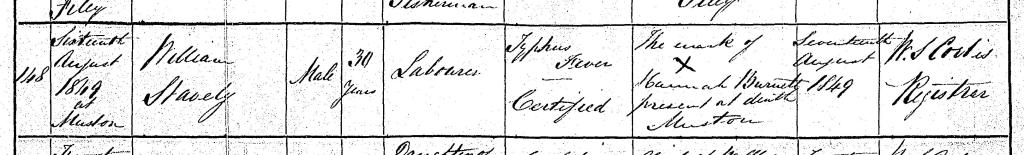 Filey
Fisherman
Filey
148
Sixteenth
August
1849
at
Muston
William
Stavely
Male
30
years
Labourer
Typhus
Fever
Certified
The mark of
X
Hannah Burnett
present at death
Muston
Seventeenth
August
1849
W. S. Cortis
Registrar
Daughter of